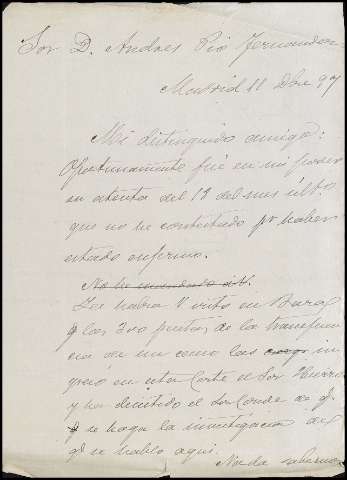 Sor D. Andres Pio Fernandez
Madrid 11 Dbre 97
Mi distinguido amigo:
Oportunamente fué en mi poder
su atenta del 13 del mes últo.
que no he contestado pr haber
estado enfermo.
No he mandado á V.
Ya habra V visto en
q las 200 pesetas de la transferen
cia de un como las cargo in
gresó en esta Corte el Sor Hierro
y ha decidido el Sor Conde de q.
q se haga la investigacion de
q se hablo aqui.
Nada sabemos